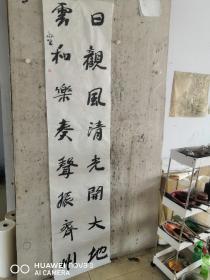 日觀風清光開大地
雲和樂奏聲振齊州
HUAWEI nova 3
AI CAMERA